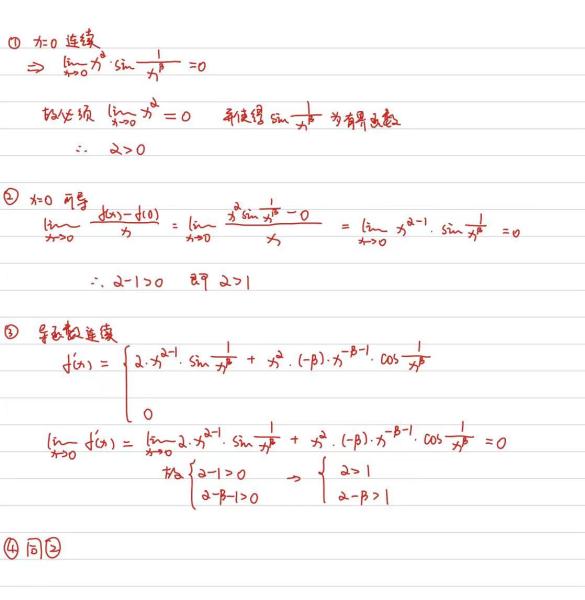 ① x=0 连续
⇒ lim x→0 x^α · sin 1/x^β =0
故必须 lim x→0 x^α = 0 并使得 sin 1/x^β 为有界函数
∴ α>0
② x=0 可导
lim x→0 f(x)-f(0)/x = lim x→0 x^α sin 1/x^β - 0/x = lim x→0 x^α-1 · sin 1/x^β = 0
∴ α-1>0 即 α>1
③ 导函数连续
f'(x) = { α·x^α-1 · sin 1/x^β + x^α · (-β)·x^-β-1 · cos 1/x^β
0
lim x→0 f'(x) = lim x→0 α·x^α-1 · sin 1/x^β + x^α · (-β)·x^-β-1 · cos 1/x^β = 0
故 { α-1>0 → { α>1
α-β-1>0 α-β>1
④ 同②